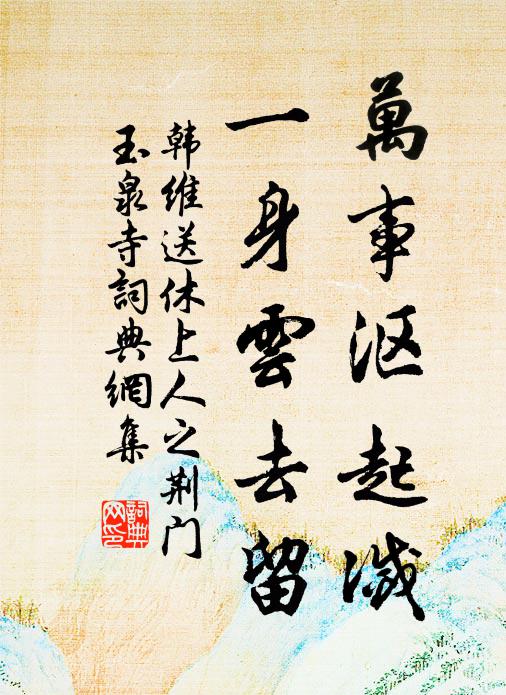 萬事沤起滅
一身雲去留
韩维送休上人之荆门
玉泉寺詞典網集
詞典網印